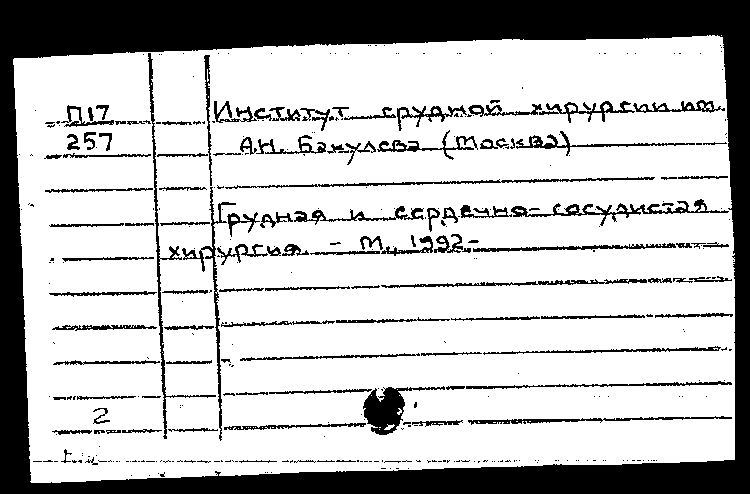 П17
257
Институт грудной хирургии им.
А.Н. Бакулева (Москва)
Грудная и сердечно-сосудистая
хирургия. - М., 1992-
2